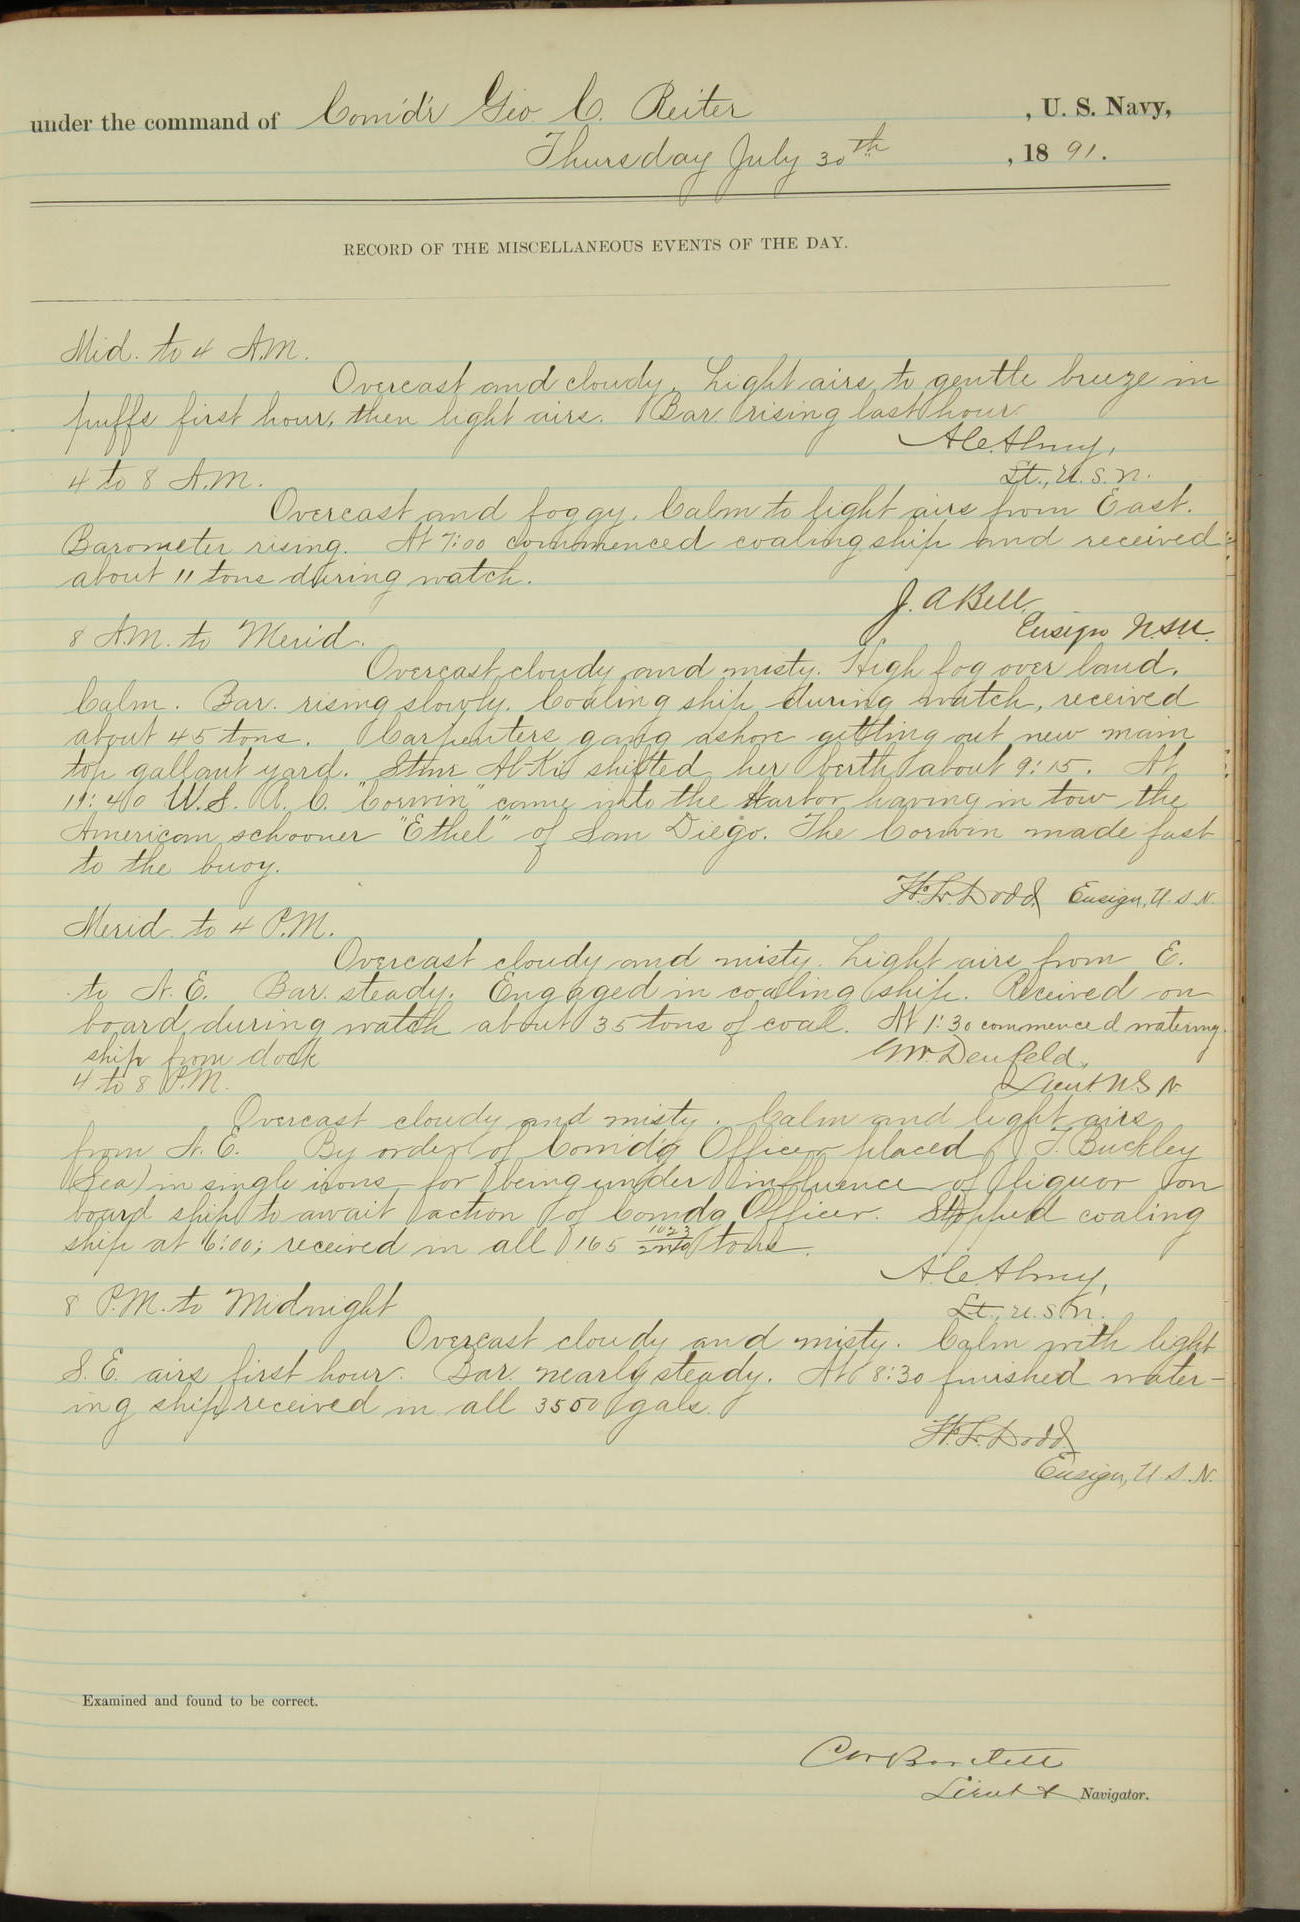 under the command of Com'd'r Geo. C. Reiter , U. S. Navy,
Thursday July 30th , 1891.
RECORD OF THE MISCELLANEOUS EVENTS OF THE DAY.
Mid. to 4 A.M.
Overcast and cloudy. Light airs to gentle breeze in
puffs first hour, then light airs. Bar. rising last hour.
A.C. Almy,
Lt., U.S.N.
4 to 8 A.M.
Overcast and foggy. Calm to light airs from East.
Barometer rising. At 7:00 commenced coaling ship and received
about 11 tons during watch.
J. A Bell.
Ensign U.S.N.
8 A.M. to Merid.
Overcast cloudy and misty. High fog over land.
Calm. Bar. rising slowly. Coaling ship during watch, received
about 45 tons. Carpenters gang ashore getting out new main
top gallant yard. Stmr Al-Ki shifted her berth about 9:15. At
11:40 U.S. R. C. "Corwin" came into the Harbor having in tow the
American schooner "Ethel" of San Diego. The Corwin made fast
to the buoy.
H. L. Dodd, Ensign, U.S.N.
Merid. to 4 P.M.
Overcast cloudy and misty. Light airs from E.
to N.E. Bar. steady. Engaged in coaling ship. Received on
board during watch about 35 tons of coal. At 1:30 commenced watering
ship from dock
Denfeld,
Lieut U.S N.
4 to 8 P.M.
Overcast cloudy and misty. Calm and light airs
from N.E. By order of Com'd'g Officer placed J. Buckley
(Sea) in single irons for being under influence of liquor on
board ship to await action of Comdg Officer. Stopped coaling
ship at 6:00; received in all 165 1023/2240 tons.
A.C. Almy,
Lt., U.S.N.
8 P.M. to Midnight
Overcast cloudy and misty. Calm with light
S.E. airs first hour. Bar. nearly steady. At 8:30 finished water-
ing ship, received in all 3500 gals.
H. L. Dodd,
Ensign, U.S.N.
Examined and found to be correct.
C W Bartlett
Lieut & Navigator.